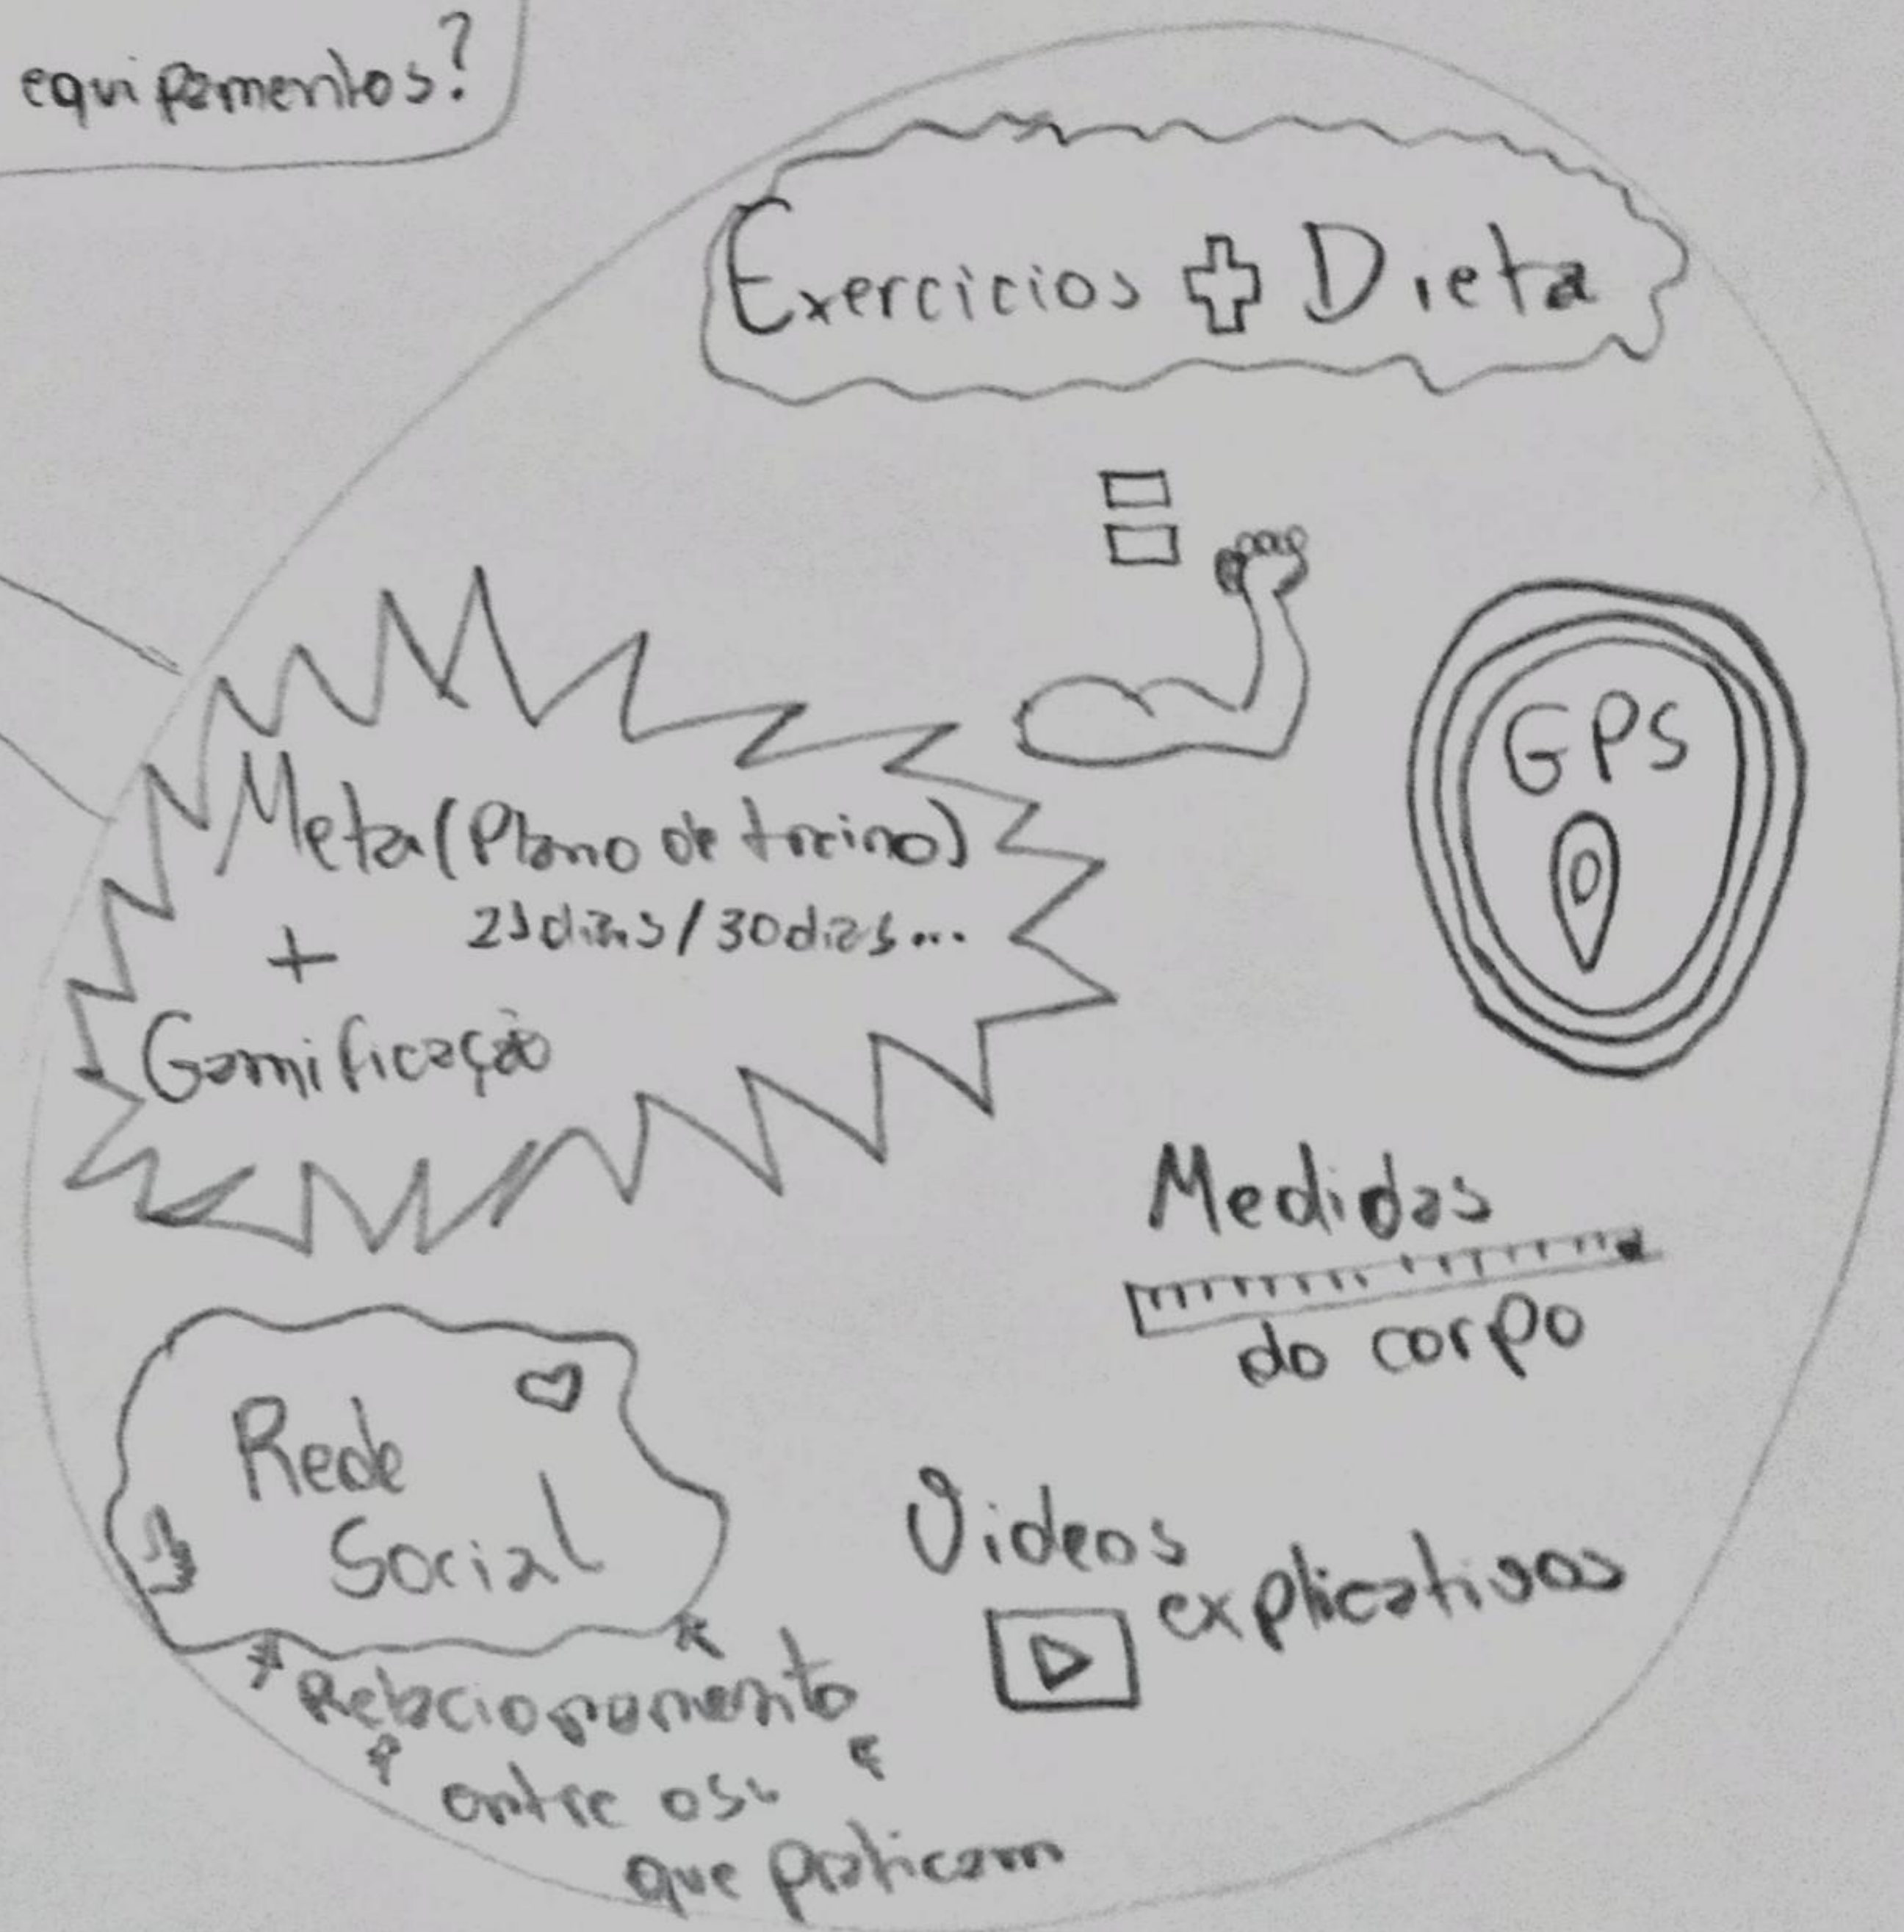 equipamentos?
Exercicios + Dieta
GPS
Meta (Plano de treino)
21dias/30dias...
+
Gamificação
Medidas
do corpo
Rede
Social
Videos
explicativos
Relacionamento
entre os
que praticam